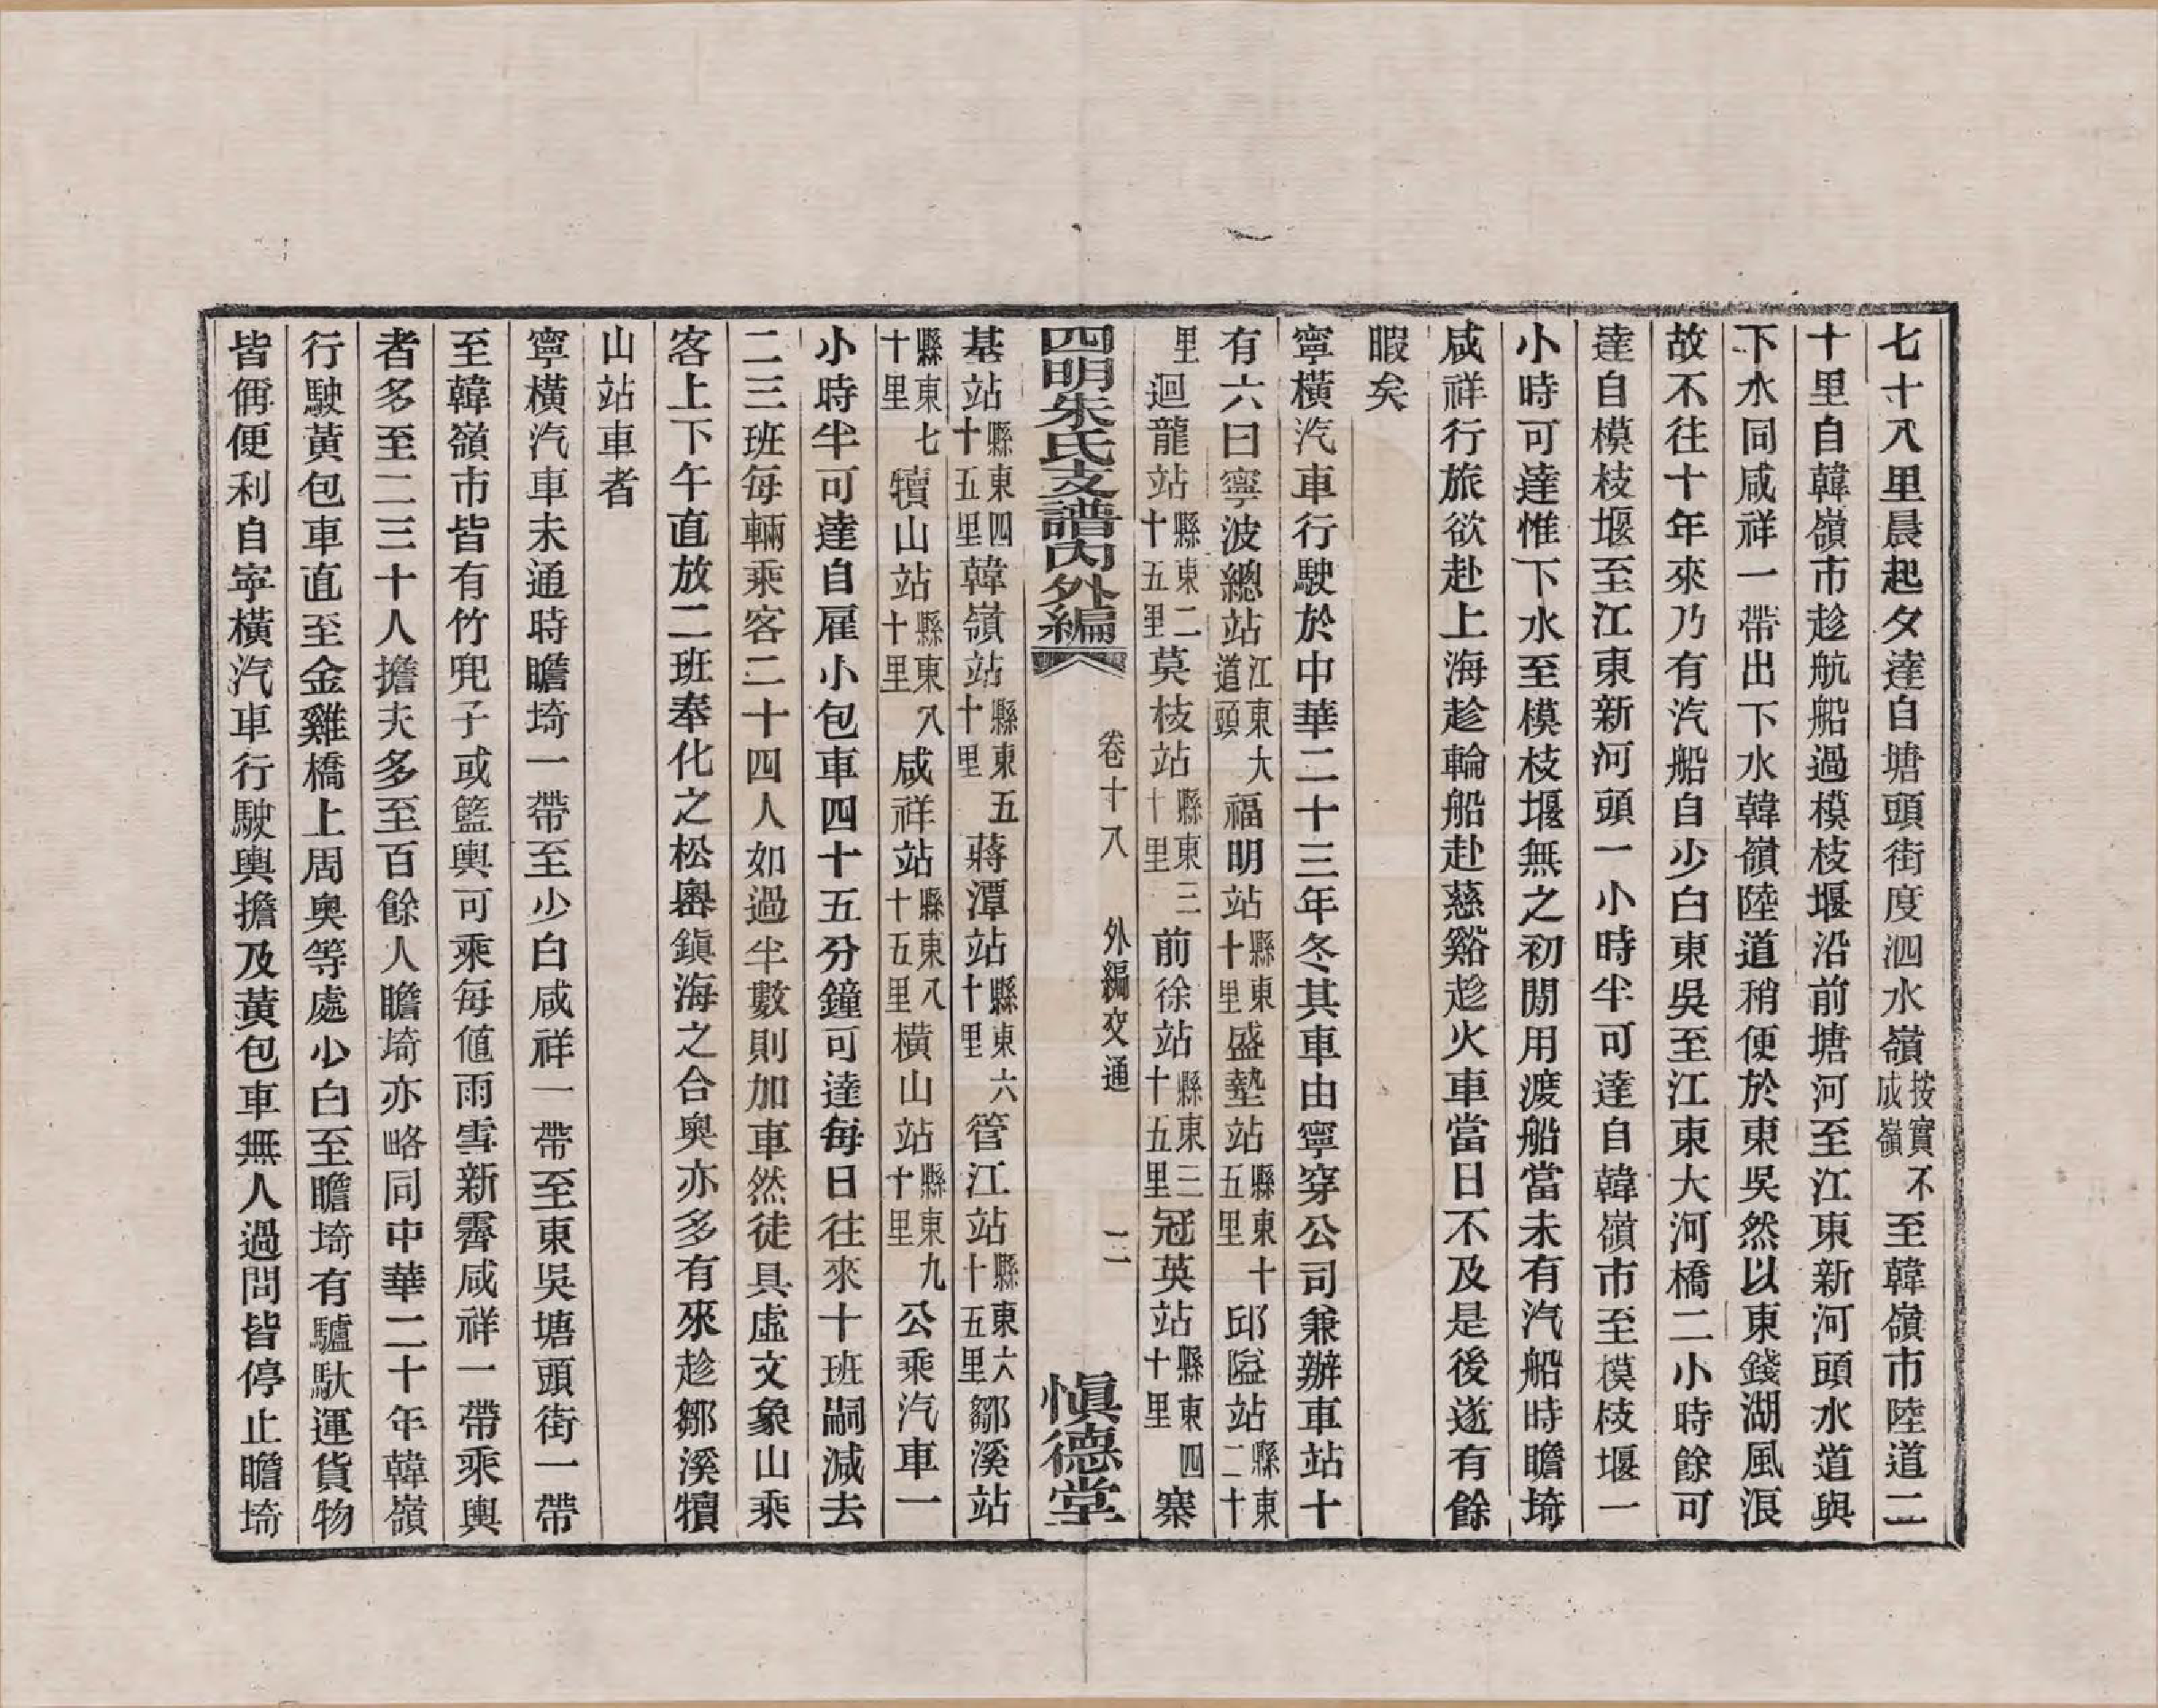 七十八里晨起夕達自塘頭街度泗水嶺按實不成嶺至韓嶺市陸道二
十里自韓嶺市趁航船過模枝堰沿前塘河至江東新河頭水道與
下水同咸祥一帶出下水韓嶺陸道稍便於東吳然以東錢湖風浪
故不往十年來乃有汽船自少白東吳至江東大河橋二小時餘可
達自模枝堰至江東新河頭一小時半可達自韓嶺市至模枝堰一
小時可達惟下水至模枝堰無之初閒用渡船當未有汽船時瞻埼
咸祥行旅欲赴上海趁輪船赴慈谿趁火車當日不及是後遂有餘
暇矣
寧橫汽車行駛於中華二十三年冬其車由寧穿公司兼辦車站十
有六曰寧波總站江東大道頭福明站縣東十里盛墊站縣東十五里邱隘站縣東二十
里迴龍站縣東二十五里莫枝站縣東三十里前徐站縣東三十五里冠英站縣東四十里寨
四明朱氏支譜內外編 卷十八 外編交通 二 愼德堂
基站縣東四十五里韓嶺站縣東五十里蔣潭站縣東六十里管江站縣東六十五里鄒溪站
縣東七十里犢山站縣東八十里咸祥站縣東八十五里橫山站縣東九十里公乘汽車一
小時半可達自雇小包車四十五分鐘可達每日往來十班嗣減去
二三班每輛乘客二十四人如過半數則加車然徒具虛文象山乘
客上下午直放二班奉化之松嶴鎭海之合奧亦多有來趁鄒溪犢
山站車者
寧橫汽車未通時瞻埼一帶至少白咸祥一帶至東吳塘頭街一帶
至韓嶺市皆有竹兜子或籃輿可乘每値雨雪新霽咸祥一帶乘輿
者多至二三十人擔夫多至百餘人瞻埼亦略同中華二十年韓嶺
行駛黃包車直至金雞橋上周奧等處少白至瞻埼有驢馱運貨物
皆俑便利自寧橫汽車行駛輿擔及黃包車無人過問皆停止瞻埼